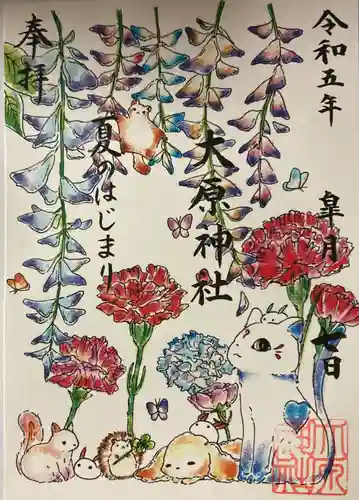 令和五年
皐月
七日
大原神社
夏のはじまり
奉拝